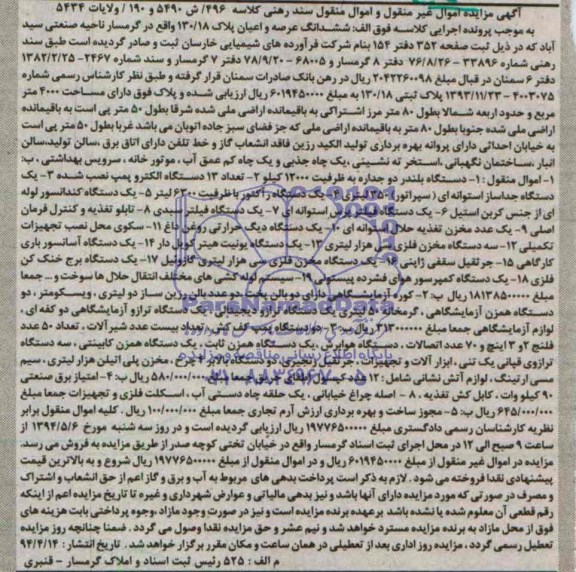 آگهی مزایده اموال غیر منقول و اموال منقول سند رهنی کلاسه ۴۹۶/ش ۵۴۹۰ و ۱۹۰ / ولایات ۵۴۳۴
به موجب پرونده اجرایی کلاسه فوق الف: ششدانگ عرصه و اعیان پلاک ۱۳۰/۱۸ واقع در گرمسار ناحیه صنعتی سید
آباد که در ذیل ثبت صفحه ۳۵۲ دفتر ۱۵۴ بنام شرکت فرآورده های شیمیایی خارسان ثبت و صادر گردیده است طبق سند
رهنی شماره ۳۳۸۹۶ - ۷۶/۸/۲۶ دفتر ۸ گرمسار و ۶۸۰۰۵ - ۷۸/۹/۲۰ دفتر ۷ گرمسار و سند شماره ۲۴۶۷- ۱۳۸۲/۲/۲۵
دفتر ۶ سمنان در قبال مبلغ ۲۰۴۲۲۶۰۰۹۸ ریال در رهن بانک صادرات سمنان قرار گرفته و طبق نظر کارشناس رسمی شماره
۴۰۰۳۰۷۵ - ۱۳۹۳/۱۱/۲۳ پلاک ثبتی ۱۳۰/۱۸ به مبلغ ۶۰۱۹۴۵۰۰۰۰ ریال ارزیابی شده و پلاک فوق دارای مساحت ۴۰۰۰ متر
مربع و حدود اربعه شمالا بطول ۸۰ متر مرز اشتراکی به باقیمانده اراضی ملی شده شرقا بطول ۵۰ متر پی است به باقیمانده
اراضی ملی شده جنوبا بطول ۸۰ متر به باقیمانده اراضی ملی که جز فضای سبز جاده اتوبان می باشد غربا بطول ۵۰ متر پی است
به خیابان احداثی دارای پروانه بهره برداری تولید الکید رزین فاقد انشعاب گاز و خط تلفن دارای اتاق برق ،سالن تولید،سالن
انبار ،ساختمان نگهبانی ،استخر ته نشینی ،یک چاه جذبی و یک چاه کم عمق آب ، موتور خانه ، سرویس بهداشتی . ب:
۱- اموال منقول : ۱- دستگاه بلندر دو جداره به ظرفیت ۱۲۰۰۰ کیلو ۲- تعداد ۱۳ دستگاه الکترو پمپ نصب شده ۳- یک
دستگاه جداساز استوانه ای ( سپراتور) ۳۵۰ لیتری ۴- یک دستگاه رآکتور با ظرفیت ۶۳۰۰ لیتر ۵- یک دستگاه کندانسور لوله
ای از جنس کربن استیل ۶- یک دستگاه فیلتر پرس استوانه ای ۷- یک دستگاه فیلتر سبدی ۸- تابلو تغذیه و کنترل فرمان
اصلی ۹- یک عدد مخزن تغذیه حلال استوانه ای ۱۰- یک دستگاه دیگ حرارتی روغن داغ ۱۱- سکوی محل نصب تجهیزات
تکمیلی ۱۲- سه دستگاه مخزن فلزی سی هزار لیتری ۱۳- یک دستگاه یونیت هیتر کویل دار ۱۴- یک دستگاه آسانسور باری
کارگاهی ۱۵- جرثقیل سقفی ژاپنی ۱۶- یک دستگاه مخزن فلزی سی هزار لیتری گازوئیل ۱۷- یک دستگاه برج خنک کن
فلزی ۱۸- یک دستگاه کمپرسور هوای فشرده پیستونی ۱۹- سیستم لوله کشی های مختلف انتقال حلال ها سوخت و ... جمعا
مبلغ ۱۸۱۳۸۵۰۰۰۰۰ ریال ب: ۲- کوره آزمایشگاهی دارای دو بالن پخت دو عدد بالن رزین ساز دو لیتری ، ویسکومتر ، دو
دستگاه همزن آزمایشگاهی ، گرمخانه ۵۰ لیتری یک دستگاه ترازو دیجیتال یک دستگاه ترازو آزمایشگاهی دو کفه ای ،
لوازم آزمایشگاهی جمعا مبلغ ۳۱۳۰۰۰۰۰۰ ریال ب: ۳- دو دستگاه پمپ کف کش ، تعداد بیست عدد شیر آلات ، تعداد ۵۰ عدد
فلنچ ۲ و ۳ اینچ و ۷۰ عدد اتصالات ، دستگاه هوابرش ، یک دستگاه همزن ثابت ، یک دستگاه همزن کابینتی ، سه دستگاه
ترازوی قپانی یک تنی ، ابزار آلات و تجهیزات ، جرثقیل زنجیری، دو دستگاه بالابر ۴ چرخ ، مخزن پلی اتیلن هزار لیتری ، سیم
مسی ارتینگ ، لوازم آتش نشانی شامل : ۱۳ عدد کپسول اطفای حریق جمعا مبلغ ۵۸۰/۰۰۰/۰۰۰ ریال ب: ۴- امتیاز برق صنعتی
۹۰ کیلو وات ، کابل کش تغذیه ، ۸ - اصله چراغ خیابانی ، یک حلقه چاه دستی آب ، اسکلت فلزی و تجهیزات جمعا مبلغ
۶۴۵/۰۰۰/۰۰۰ ریال ب: ۵- مجوز ساخت و بهره برداری ارزش آرم تجاری جمعا مبلغ ۱۰۰/۰۰۰/۰۰۰ ریال . کلیه اموال منقول برابر
نظریه کارشناسان رسمی دادگستری مبلغ ۱۹۷۷۶۵۰۰۰۰۰ ریال ارزیابی گردیده است و در روز سه شنبه مورخ ۱۳۹۴/۵/۶ از
ساعت ۹ صبح الی ۱۲ در محل اجرای ثبت اسناد گرمسار واقع در خیابان تختی کوچه صدر از طریق مزایده به فروش می رسد.
مزایده در اموال غیر منقول از مبلغ ۶۰۱۹۴۵۰۰۰۰ ریال و در اموال منقول از مبلغ ۱۹۷۷۶۵۰۰۰۰۰ ریال شروع و به بالاترین قیمت
پیشنهادی نقدا فروخته می شود . لازم به ذکر است پرداخت بدهی های مربوط به آب و برق و گاز اعم از حق انشعاب و اشتراک
و مصرف در صورتی که مورد مزایده دارای آنها باشد و نیز بدهی مالیاتی و عوارض شهرداری و غیره تا تاریخ مزایده اعم از اینکه
رقم قطعی آن معلوم شده یا نشده باشد برعهده برنده مزایده است و نیز در صورت وجود مازاد ،وجوه پرداختی بابت هزینه های
فوق از محل مازاد به برنده مزایده مسترد خواهد شد و نیم عشر و حق مزایده نقدا وصول می گردد . ضمنا چنانچه روز مزایده
تعطیل رسمی گردد ، مزایده روز اداری بعد از تعطیلی در همان ساعت و مکان مقرر برگزار خواهد شد . تاریخ انتشار : ۹۴/۴/۱۴
م الف : ۵۲۵ رئیس ثبت اسناد و املاک گرمسار - قنبری
ParsNamadData
پایگاه اطلاع رسانی مناقصه و مزایده